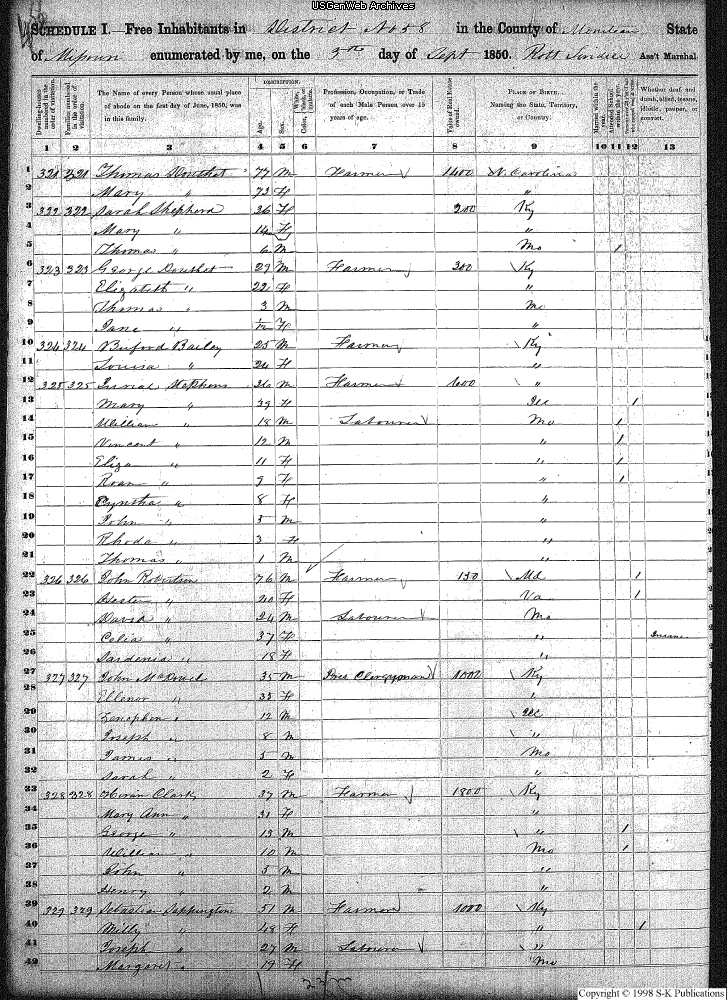 USGenWeb Archives
SCHEDULE I. Free Inhabitants in District No 58 in the County of Moniteau State
of Missouri enumerated by me, on the 3rd day of Sept 1850. Ass't Marshal
DESCRIPTION.
Dwelling-houses numbered in the order of visitation.
Families numbered in the order of visitation.
The Name of every Person whose usual place of abode on the first day of June, 1850, was in this family.
Age.
Sex.
Color, White, black, or mulatto.
Profession, Occupation, or Trade of each Male Person over 15 years of age.
Value of Real Estate owned.
PLACE OF BIRTH. Naming the State, Territory, or Country.
Married within the year.
Attended School within the year.
Whether deaf and dumb, blind, insane, idiotic, pauper, or convict.
1 2 3 4 5 6 7 8 9 10 11 12 13
1 321 321 Thomas Douthet 77 M Farmer 1400 N. Carolina
2 Mary " 73 F "
3 322 322 Sarah Shepherd 36 F 200 Ky
4 Mary " 14 F "
5 Thomas " 6 M Mo 1
6 323 323 George Douthet 29 M Farmer 300 Ky
7 Elizabeth " 22 F "
8 Thomas " 3 M Mo
9 Jane " /12 F "
10 324 324 Buford Bailey 25 M Farmer Ky
11 Louisa " 24 F "
12 325 325 Stephens 36 M Farmer "
13 Mary " 39 F 1
14 William " 18 M Labourer Mo 1
15 Vincent " 12 M " 1
16 Eliza " 11 F " 1
17 Roan " 9 F " 1
18 Cyntha " 8 F "
19 John " 5 M "
20 Rhoda " 3 F "
21 Thomas " 1 M "
22 326 326 John Robertson 76 M Farmer 150 Md 1
23 Hester " F Va 1
24 David " 24 M Labourer Mo
25 Celia " 37 F " Insane
26 Sardenia " 18 F "
27 327 327 John McDowel 35 M Pres Clergyman 1000 Ky
28 Ellenor " 33 F "
29 Zenophon " 12 M
30 Joseph " 8 M "
31 James " 5 M Mo
32 Sarah " 2 F "
33 328 328 Hiram Clark 37 M Farmer 1800 Ky
34 Mary Ann " 31 F "
35 George " 13 M " 1
36 William " 10 M Mo 1
37 John " 5 M "
38 Henry " 2 M "
39 329 329 Sebastian Sappington 51 M Farmer 1000 Ky
40 Milly " 48 F " 1
41 Joseph " 27 M Labourer "
42 Margaret " 19 F Mo
Copyright © 1998 S-K Publications